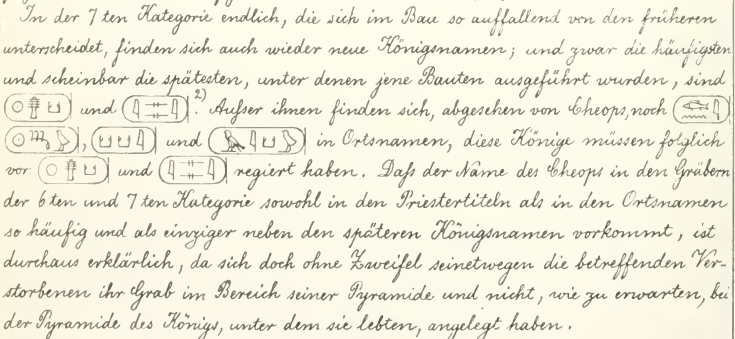 In der 7 ten Kategorie endlich, die sich im Bau so auffallend von den früheren
unterscheidet, finden sich auch wieder neue Königsnamen; und zwar die häufigsten
und scheinbar die spätesten, unter denen jene Bauten ausgeführt wurden, sind
und 2). Aufser ihnen finden sich, abgesehen von Cheops, noch
, und in Ortsnamen, diese Könige müssen folglich
vor und regiert haben. Dafs der Name des Cheops in den Gräbern
der 6 ten und 7 ten Kategorie sowohl in den Priestertiteln als in den Ortsnamen
so häufig und als einziger neben den späteren Königsnamen vorkommt, ist
durchaus erklärlich, da sich doch ohne Zweifel seinetwegen die betreffenden Ver-
storbenen ihr Grab im Bereich seiner Pyramide und nicht, wie zu erwarten, bei
der Pyramide des Königs, unter dem sie lebten, angelegt haben.